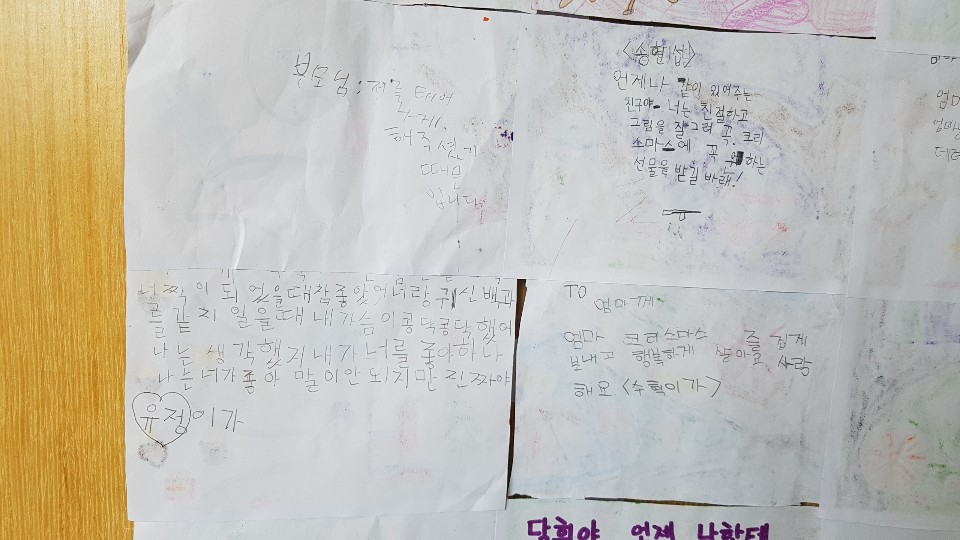 부모님: 저를 태어
나게
해주셨기
때문
입니다
<송현섭>
언제나 같이 있어주는
친구야 너는 친절하고
그림을 잘 그려 꼭. 크리
스마스에 꼭 원하는
선물을 받길 바래!
엄마
짝이 되었을때 참 좋았어 너랑 귀신백과
를 같지 읽을때 내가슴이 콩닥콩닥했어
나는 생각했짐 내가 너를 좋아하나
나는 너가 좋아 말이안되지만 진짜야
유정이가
TO
엄마께
엄마 크리스마스 즐겁게
보내고 행복하게 살아요 사랑
해요 <수혁이가>
언제 나한테